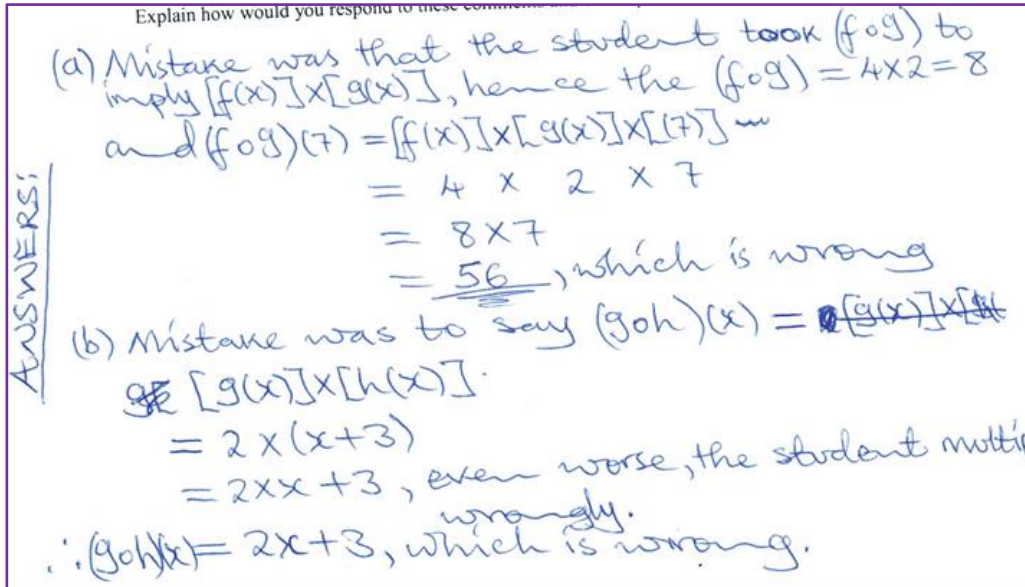 Explain how would you respond to these comments
(a) Mistake was that the student took (fog) to
imply [f(x)]x[g(x)], hence the (fog) = 4x2=8
and (fog)(7) = [f(x)]x[g(x)]x[(7)]
= 4 x 2 x 7
= 8x7
= 56, which is wrong
ANSWERS:
(b) Mistake was to say (goh)(x) = [g(x)]x[
[g(x)]x[h(x)].
= 2x(x+3)
= 2xx+3, even worse, the student multi
wrongly.
∴(goh)(x)= 2x+3, which is wrong.